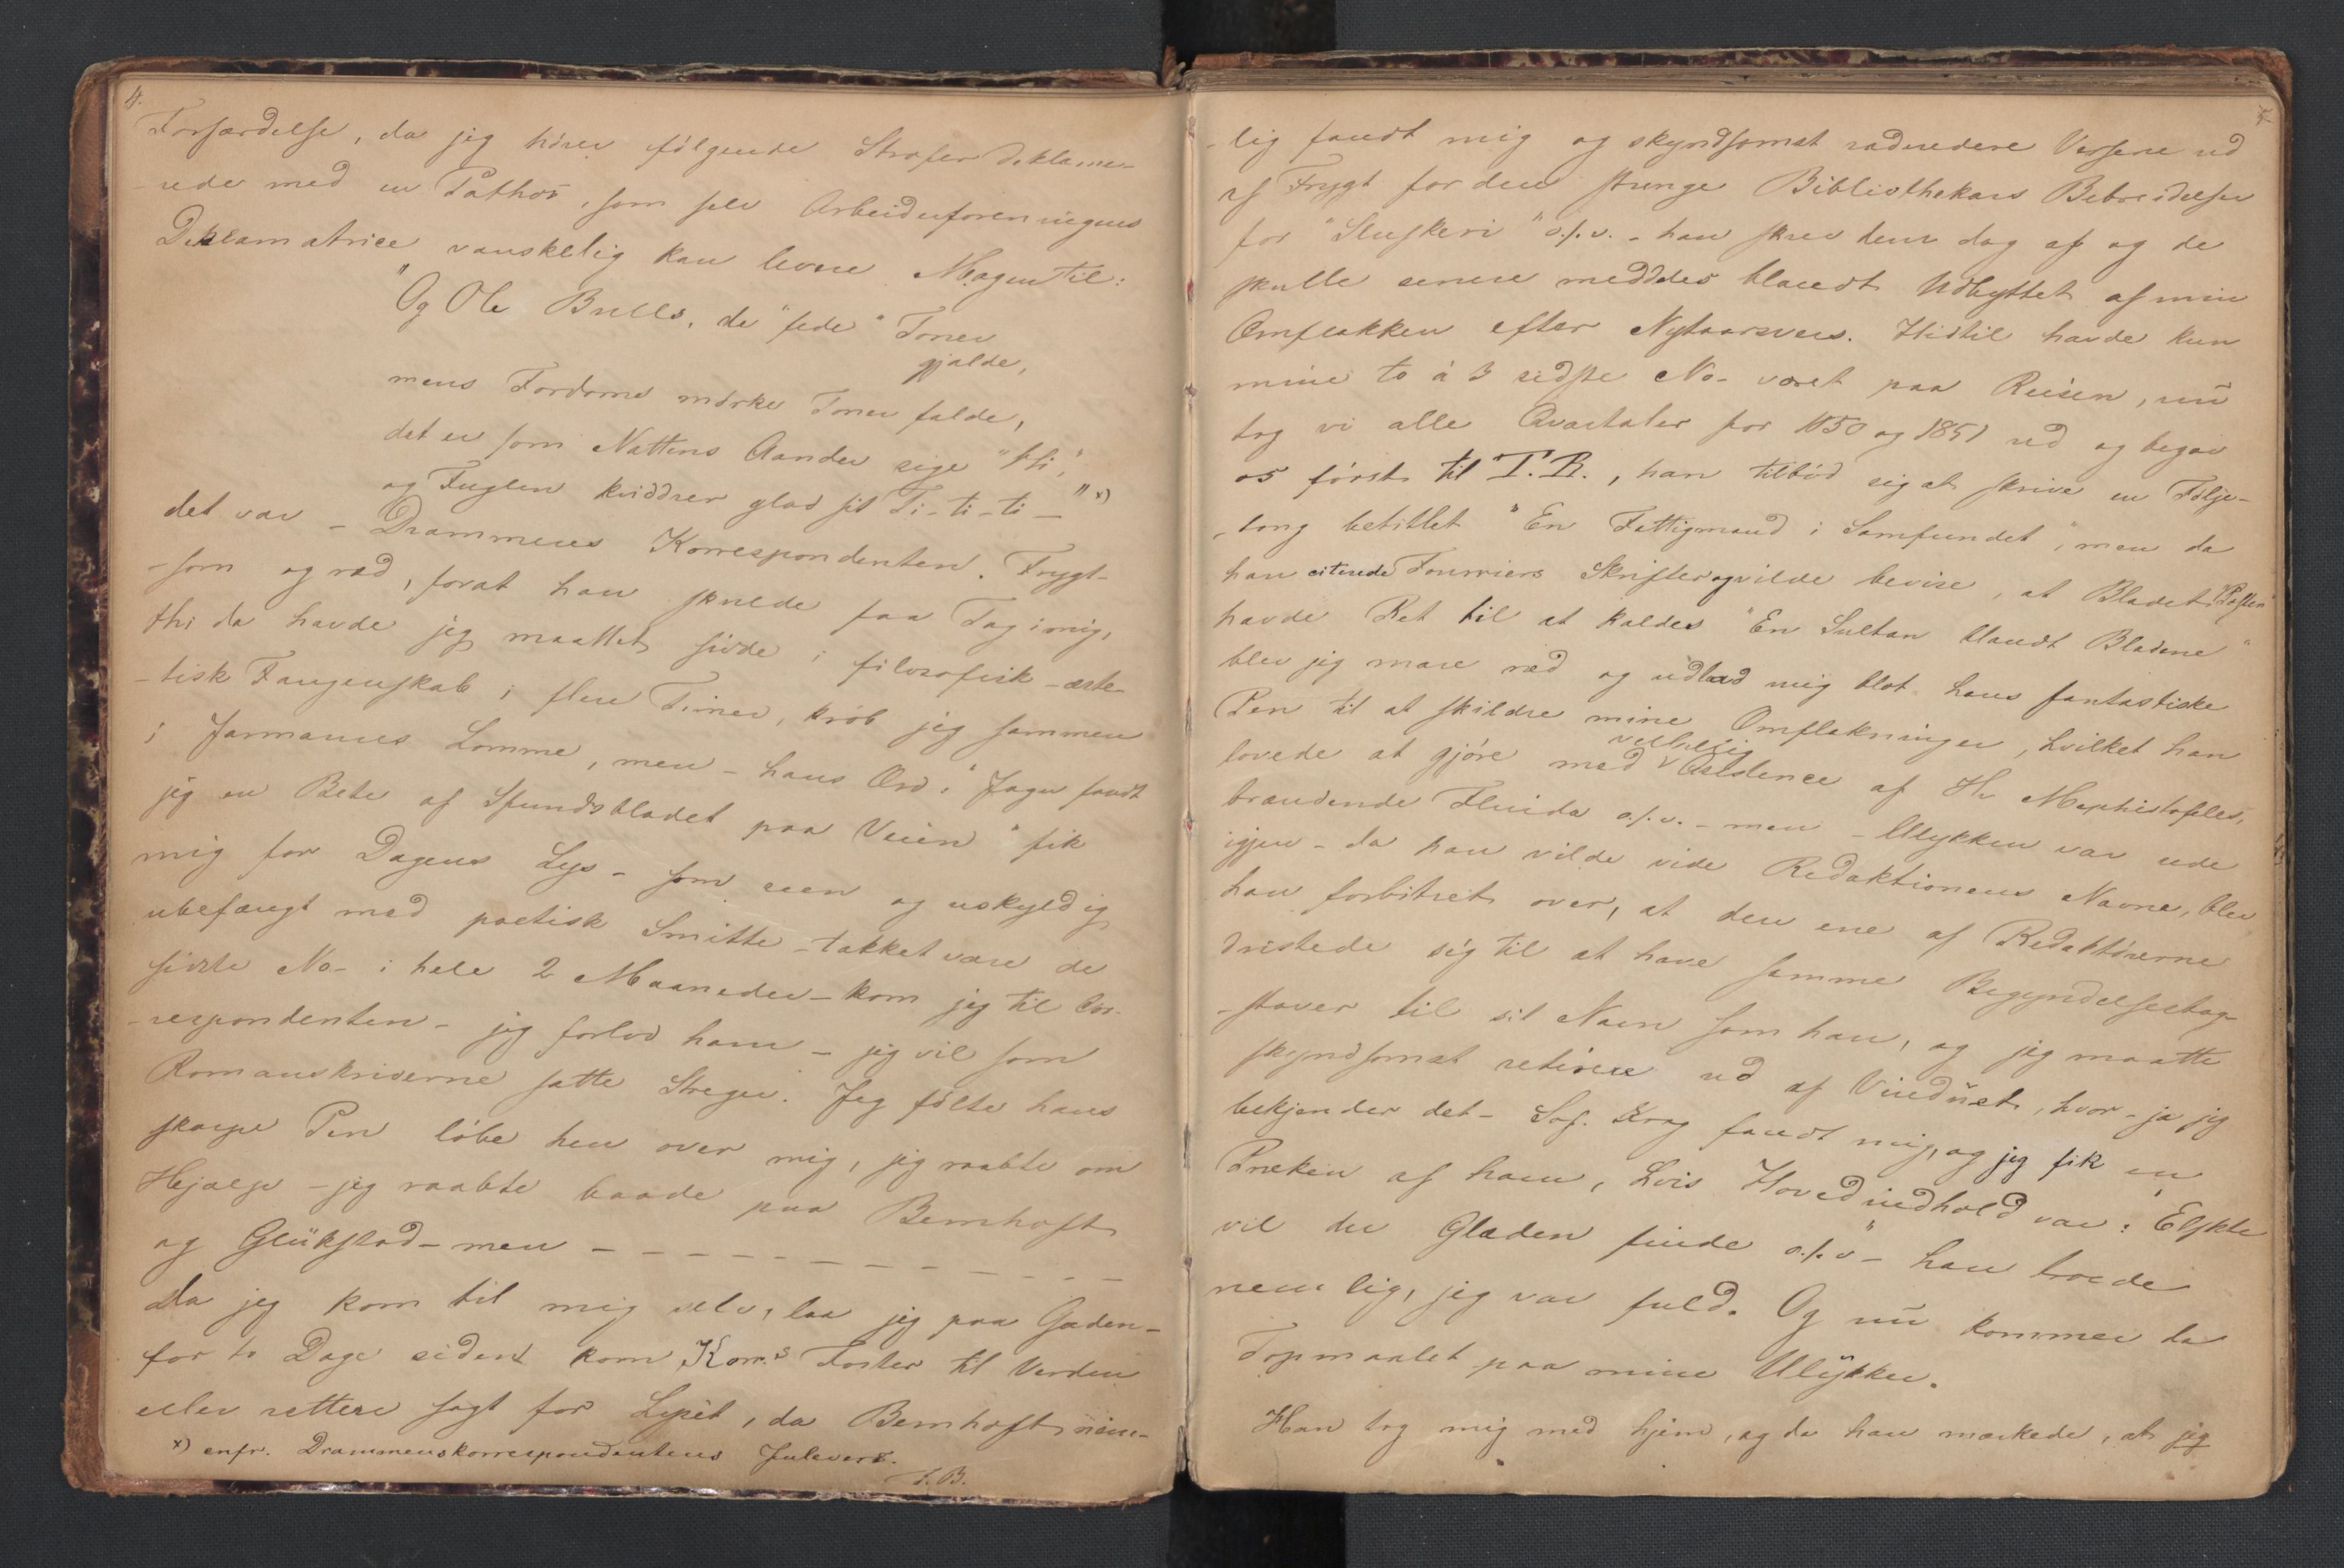 4.
Forfærdelse, da jeg hører følgende Strofer deklame-
-rede med en Pathos, som selv Arbeiderforeningens
Deklamatrice vanskelig kan levere Magen til:
"Og Ole Bulls, de "fede" Toner
gjalde,
mens Fordoms mørke Toner falde,
det er som Nattens Aander sige "
og Fuglen kviddrer glad sit Ti-ti-ti-" x)
det var - Drammens Korrespondenten. Frygt-
-som og ræd, forat han skulde faa Tag i mig,
thi da havde jeg maattet sidde i filosofisk-æste-
-tisk Fangenskab i flere Timer, krøb jeg sammen
i Jarmanns Lomme, men - hans Ord: "Jagu fandt
jeg en Bete af Sfundsbladet paa Veien" fik
mig for Dagens Lys - som reen og uskyldig
ubefængt med poetisk Smitte - takket være de
sidste No- i hele 2 Maaneder - kom jeg til Cor-
-respondenten - jeg forlod ham - jeg vil som
Romanskriverne sætte Streger. Jeg følte hans
skarpe Pen løbe hen over mig, jeg raabte om
Hjælp - jeg raabte baade paa Bernhoft
og Glükstad - men - - - - - - - - - - - -
da jeg kom til mig selv, laa jeg paa Gaden -
for to Dage siden kom Korr.s Foster til Verden
eller rettere sagt for Lyset, da Bernhoft nem-
x) cnfr. Drammenskorrespondentens Julevers.
T.B.
-lig fandt mig og skyndsomst raderede Versene ud
af Frygt for den strenge Bibliothekars Bebreidelser
for "Sluskeri" o.s.v. - han skrev dem dog af og de
skulle senere meddeles blandt Udbyttet af min
Omflakken efter Nytaarsvers. Hidtil havde kun
mine to à 3 sidste No- været paa Reisen, nu
tog vi alle Qvartaler for 1850 og 1851 ud og begav
os først til T.R., han tilbød sig at skrive en Følje-
-tong betitlet "En Fattigmand i Samfundet", men da
han citerede Fourriers Skrifter og vilde bevise, at Bladet "Posten"
havde Ret til at kaldes "En Sultan blandt Bladene"
blev jeg mare ræd og udbad mig blot hans fantastiske
Pen til at skildre mine Omflakninger, hvilket han
velvillig
lovede at gjøre med Assistence af Hr Mephistofeles,
brændende Fluida o.s.v. - men - Ulykken var ude
igjen - da han vilde vide Redaktionens Navne, blev
han forbitret over, at den ene af Redaktørerne
dristede sig til at have samme Begyndelsesbog-
-staver til sit Navn som han, og jeg maatte
skyndsomst retirere ud af Vinduet, hvor - ja jeg
bekjender det - Sof. Krag fandt mig, og jeg fik en
Præken af ham, hvis Hovedindhold var: "Elskte
vil du Glæden finde o.s.v" - han troede
nemlig, jeg var fuld. Og nu kommer da
Topmaalet paa mine Ulykker.
Han tog mig med hjem, og da han mærkede, at jeg